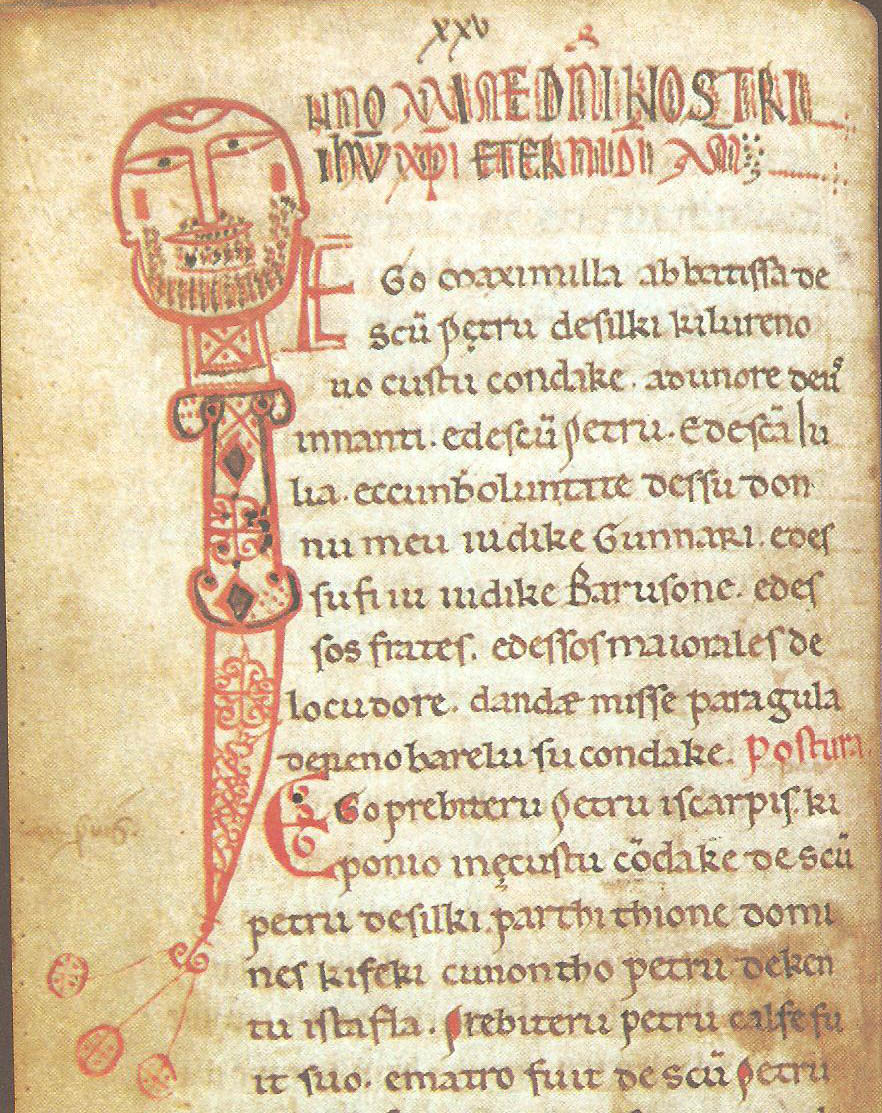 xxv
IN NOMINE DNI NOSTRI
IHV XPI ETERNI DI AM
EGo maximilla abbatissa de
scu petru desilki ki lu reno
uo custu condake. ad unore deu
innanti. edescu petru. E de sca lu
lia. eccun boluntate dessu don
nu meu iudike Gunnari. edes
su fiiu iudike Barusone. edes
sos frates. edessos maiorales de
locudore. dandæ misse paragula
derenobarelu su condake. Postura.
EGo prebiteru petru iscarpis. ki
ponio inęcustu cōdake de scū
petru desilki. parthithione domi
nes kifeki cunontho petru deken
tu istafla. Prebiteru petru calfe fu
it suo. ematro fuit de scū petru